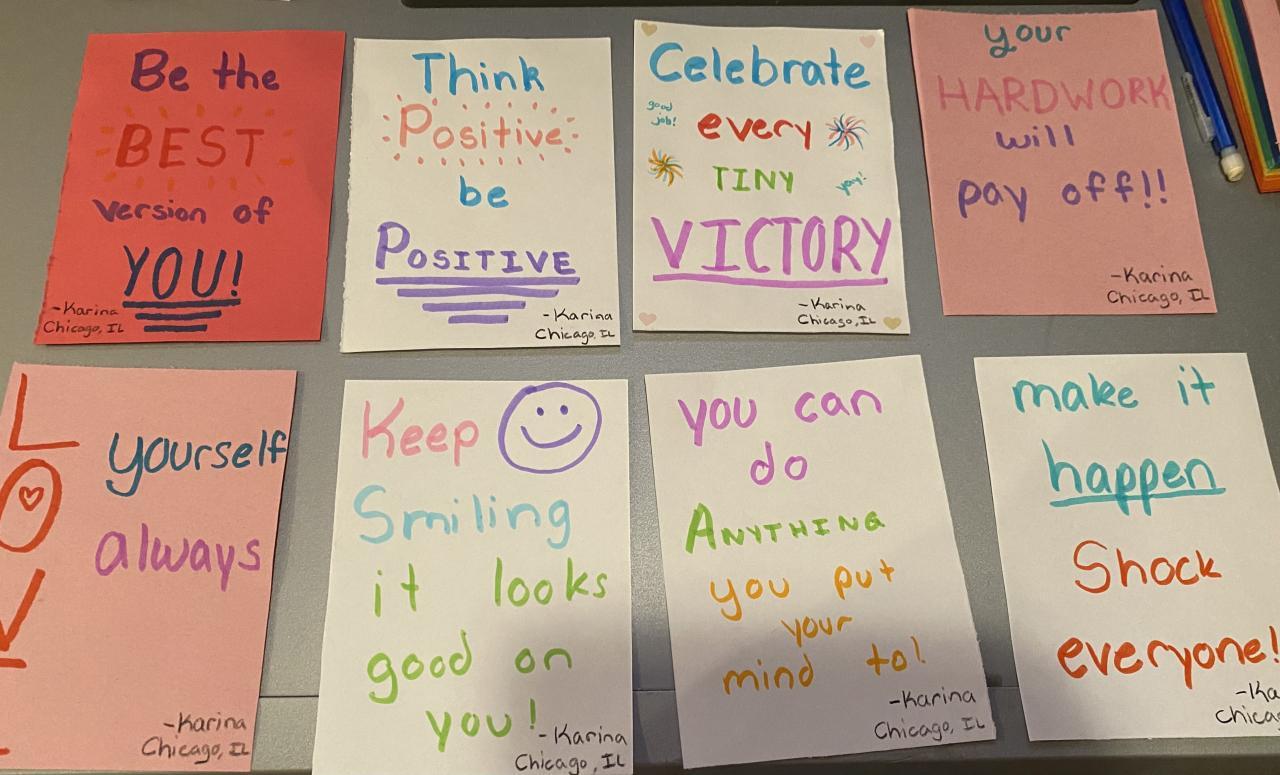 Be the
BEST
version of
YOU!
-Karina
Chicago, IL
Think
Positive
be
POSITIVE
-Karina
Chicago, IL
Celebrate
good
job!
every
TINY
yay!
VICTORY
-Karina
Chicago, IL
your
HARDWORK
will
pay off!!
-Karina
Chicago, IL
L
O
V
yourself
always
-Karina
Chicago, IL
Keep
Smiling
it looks
good on
you!
-Karina
Chicago, IL
you can
do
ANYTHING
you put
your
mind to!
-Karina
Chicago, IL
make it
happen
Shock
everyone!
-Ka
Chica